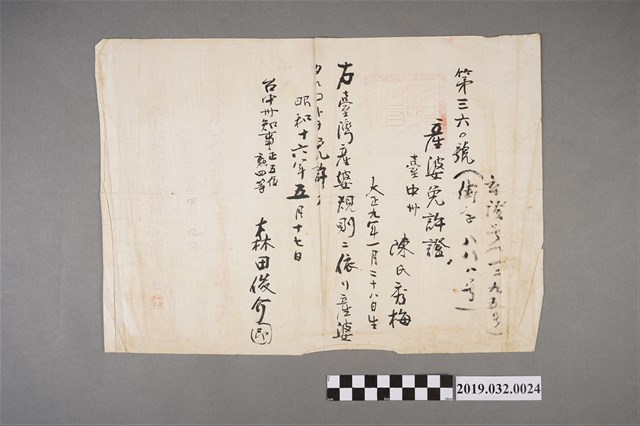 第三六〇號
産婆免許證
臺中州
陳氏秀梅
大正九年一月二十八日生
右臺灣産婆規則ニ依リ産婆
昭和十六年五月十七日
台中州知事正五位
勲四等
森田俊介
2019.032.0024